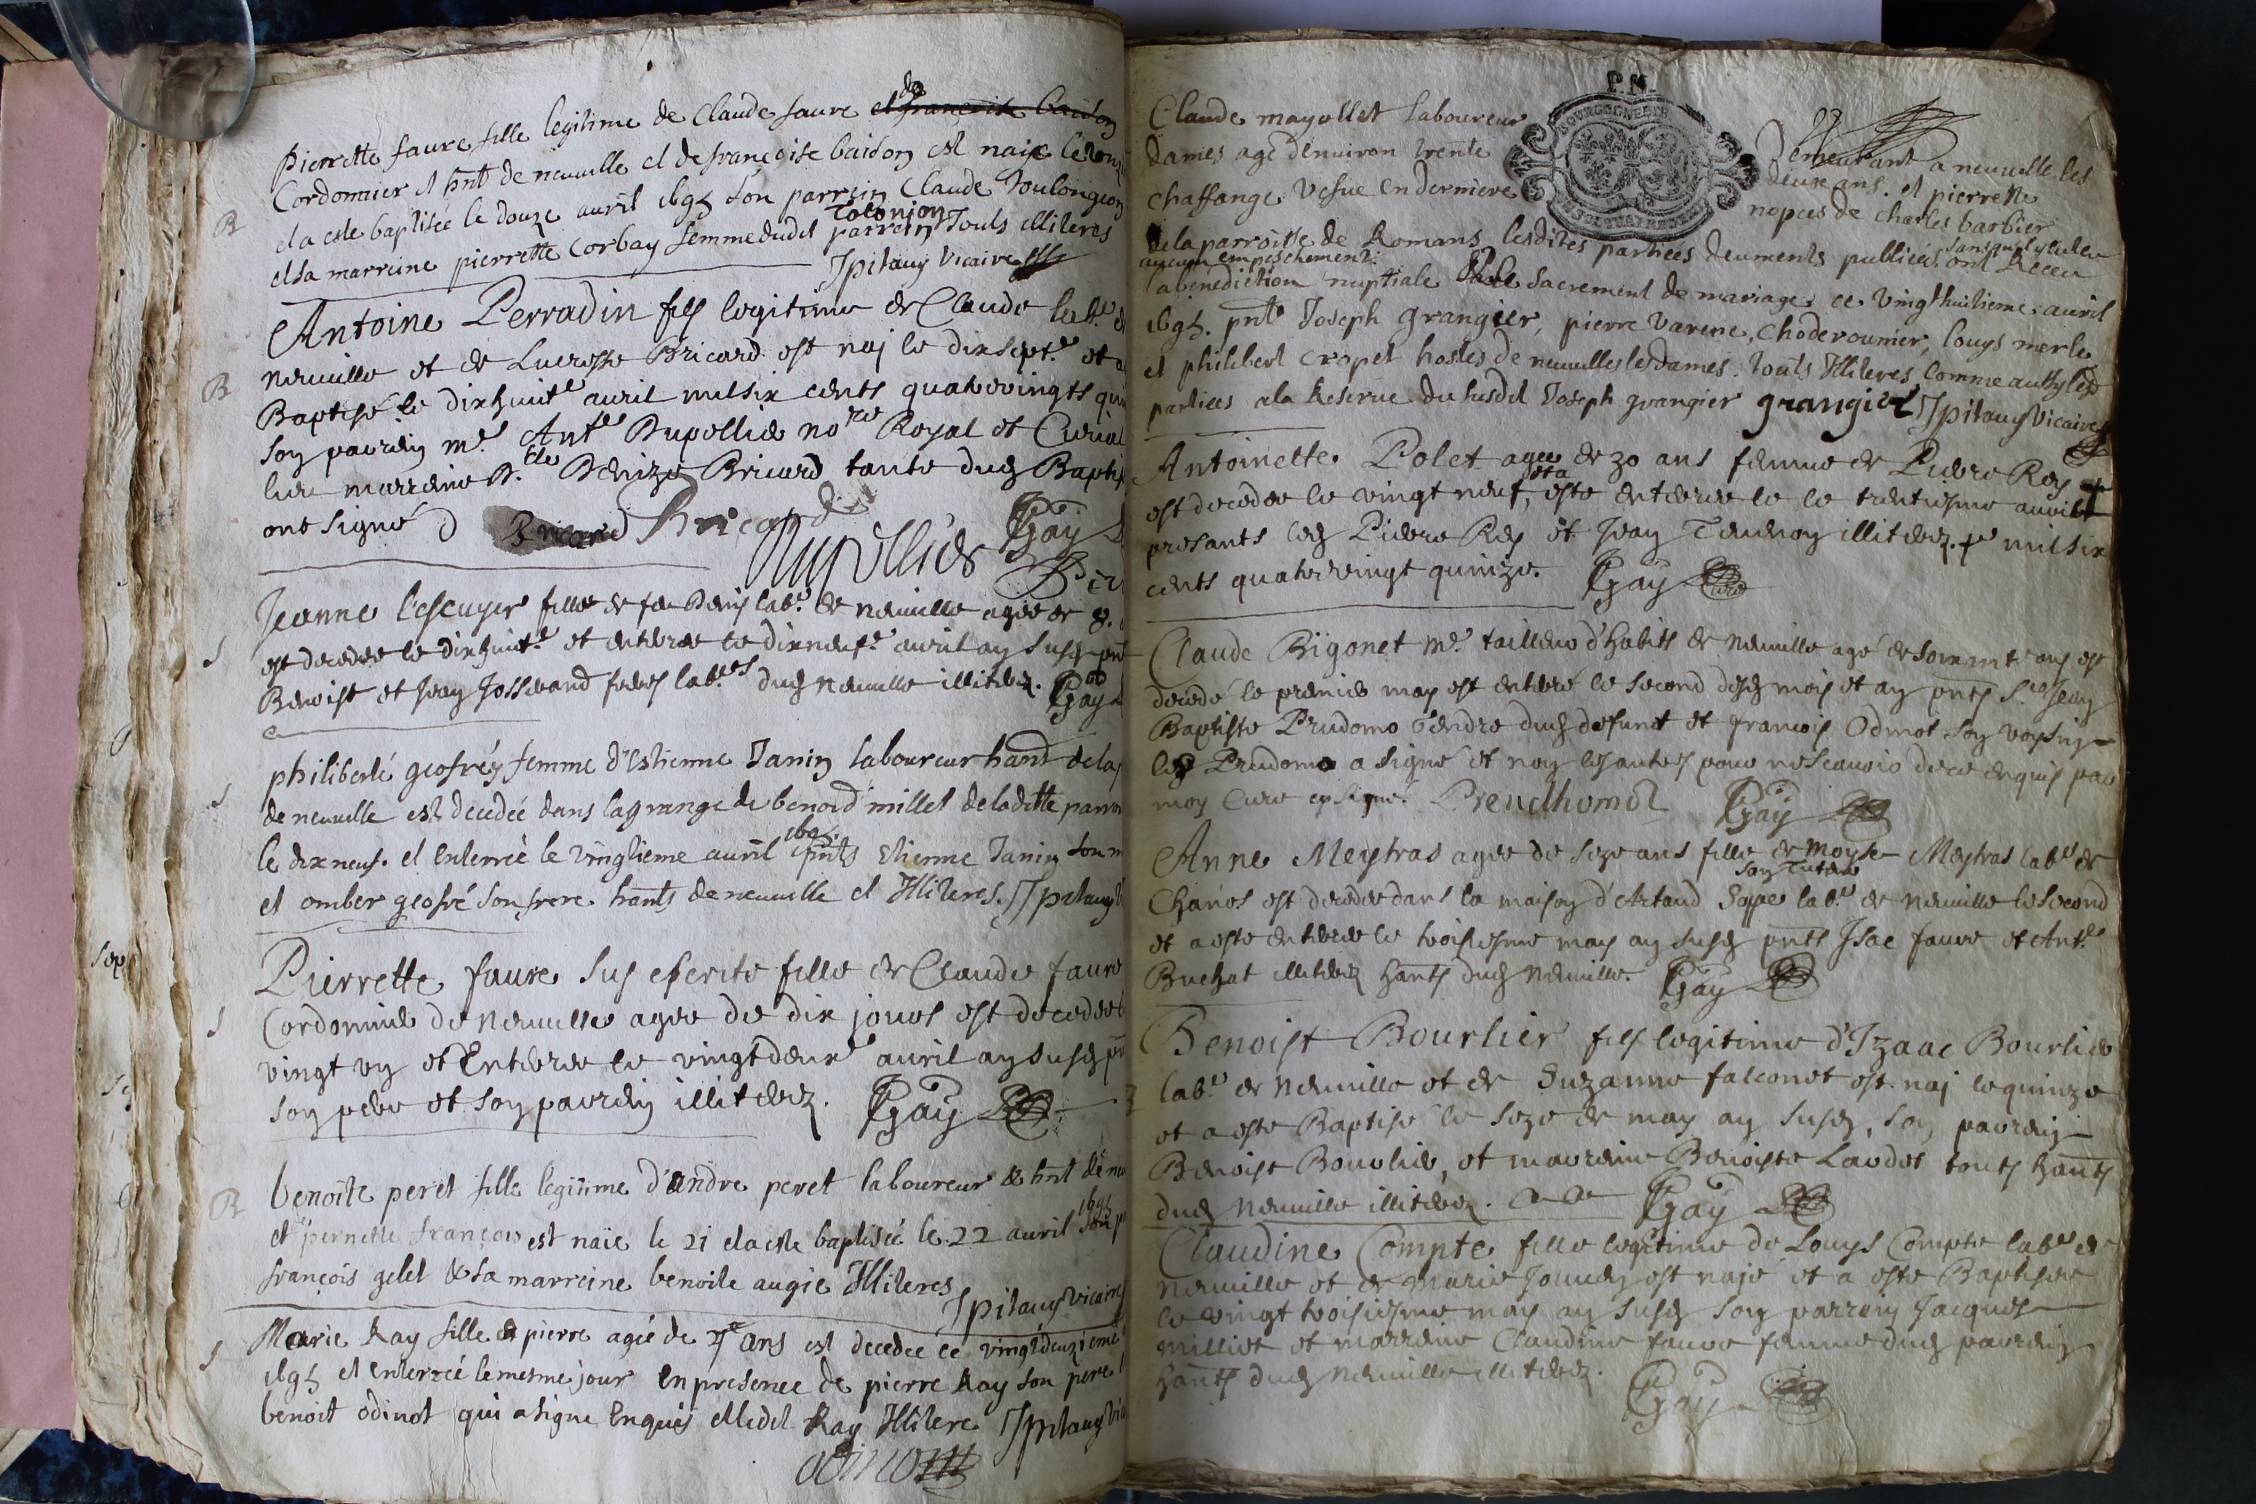 Pierrette faure fille legitime de Claude faure et francoise baidon
de
Cordonnier et hnt de neuville et de francoise baidon est naie le
et a este baptisée le douze auril 1695 son parrein Claude Toulongeon
et sa marreine pierrette Corbay femme dudit parrein Touts illiteres
Jpitauy Vicaire
B
Antoine Perradin fils legitime de Claude lab.r
neuuille et de Lucresse Bricard est naj le dixsept.e et a
B
Baptisé le dixhuit.e auril mil six cents quatrevingts
son parrein m.e Ant.e Dupollier no.re Royal et Curial
marreine d.lle Denize Bricard tante dud Baptisé
ont signé
Bricard
Dupollier Gay
Jeanne lescuyer fille de feu Denis lab.r de neuuille agée de 8.
S
est decedée le dixhuit.e et enterrée le dixneuf.e auril an susd
Benoist et Jean Josserand freres lab.rs dud neuuille illiterez. Gay
philiberte geofréy femme d'Estienne Janin laboureur hant de la
S
de neuuille est decedée dans la grange de benoid millet de la ditte
le dixneuf. et enterreé le vingtieme auril 1695 pnts Etienne Janin son
et omber geofré son frere hants de neuuille et illiteres. Jpitauy
Pierrette faure sus escrite fille de Claude faure
S
Cordonnier de neuuille agée de dix jours est decedée
vingt un et Enterrée le vingtdeux.e auril an susd
son pere et son parrein illiterez. Gay
benoite peret fille legitime d'andre peret laboureur & hnt de
B
et pernette françois est naïe le 21 et a este baptisée le 22 auril 1695
françois gelet & sa marreine benoite augie illiteres
Jpitauy Vicaire
Marie Ray fille de pierre agée de ans est decedée ce vingtdeuzieme
S
1695 et enterreé le mesme jour en presence de pierre Ray son pere
benoit odinot qui a signe Enquis et ledit Ray illitere Jpitauy
odinot
Claude mayollet laboureur
P.N.
BOURGOGNE
demeurant a neuuille les
dames agé denuiron trente
deux ans. et pierrette
chaffange Vefue en derniere
nopces de charles barbier
de la parroisse de Romans lesdites parties deuments publiées sans quil y
aucun empeschement. ont Receu
la benediction nuptiale & le sacrement de mariage ce vingthuitieme auril
1695. pnt Joseph grangier, pierre Varene, Choderounier, louys merle
et philibert cropet hostes de neuuilleslesdames. Touts Illiteres comme aussy les
parties a la Reserue du susdit Joseph grangier grangier Jpitauy Vicaire
Antoinette Polet agée de 30 ans femme de Pierre Rey
est decedée le vingt neuf, et a esté enterrée le le trentiesme auril
presants led Pierre Rey et Jean Tournoy illiterez. mil six
cents quatrevingt quinze. Gay Curé
Claude Bigonet m.e tailleur d'habits de neuuille agé de soixante ans est
decedé le premier may est enterré le second dud mois et an pnts S.r Jean
Baptiste Prudomo Gendre dud defunt et francois Odinot son voysin
led Prudomo a signé et non les autres pour ne scauoir de ce enquis par
moy Curé Preudhomo Gay
Anne Meytras agée de seze ans fille de moyse Meytras lab.r de
son Tuteur
Chanos est decedée dans la maison d'Artaud lab.r de neuuille le second
et a este enterrée le troisiesme may an susd pnts Isac faure et Ant.e
Buchat illiterez hants dud neuuille. Gay
Benoist Bourlier fils legitime d'Izaac Bourlier
lab.r de neuuille et de Suzanne falconet est naj le quinze
et a este Baptisé le seze de may an susd, son parrein
Benoist Bourlier, et marreine Benoiste Laudet touts hants
dud neuuille illiterez. Gay
Claudine Compte fille legitime de Louys Compte lab.r de
neuuille et de Marie est najé et a este Baptisée
le vingt troisiesme may an susd son parrein Jacques
milliet et marreine Claudine faure femme dud parrein
hants dud neuuille illiterez.
Gay